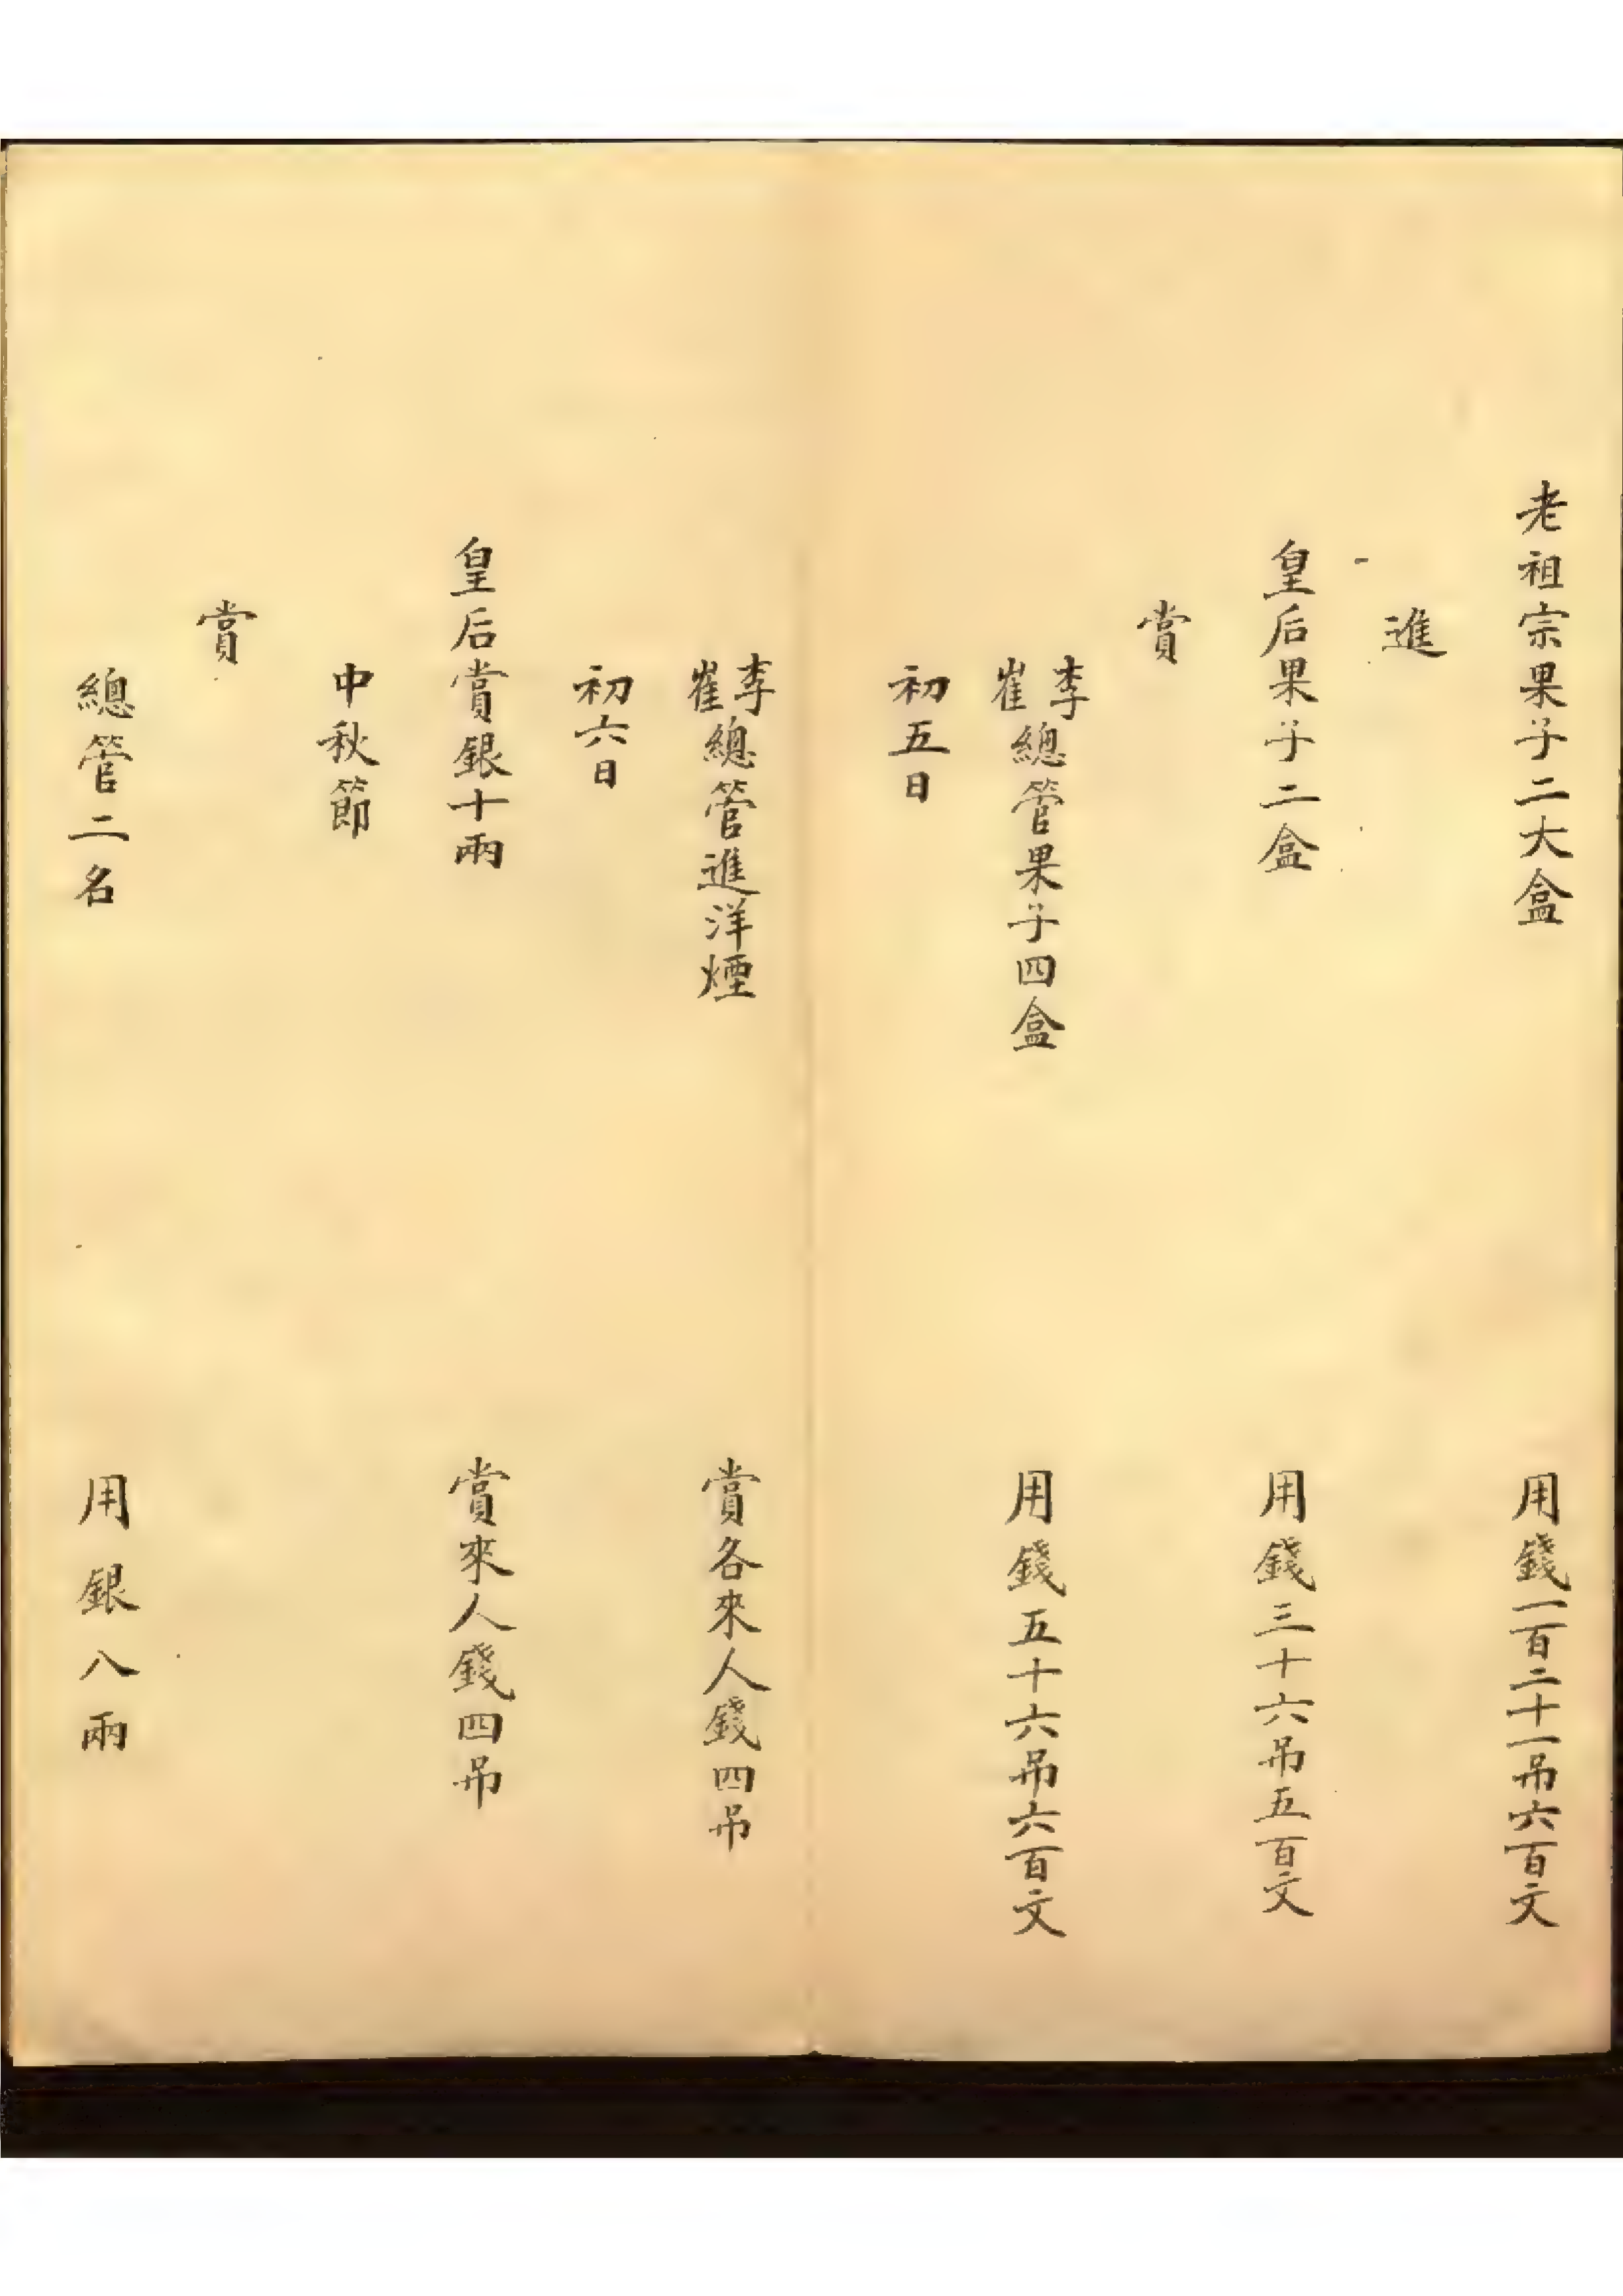 老祖宗果子二大盒　用錢一百二十一吊六百文
進
皇后果子二盒　用錢三十六吊五百文
賞
李崔總管果子四盒　用錢五十六吊六百文
初五日
李崔總管進洋煙　賞各來人錢四吊
初六日
皇后賞銀十兩　賞來人錢四吊
中秋節
賞
總管二名　用銀八兩